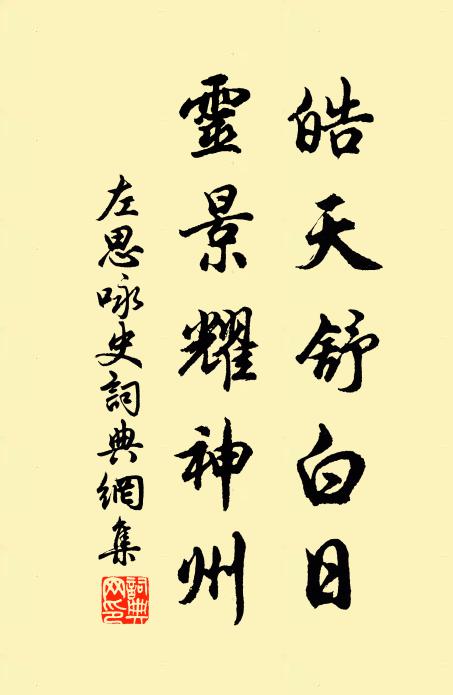 皓天舒白日
靈景耀神州
左思咏史詞典網集
詞典網印